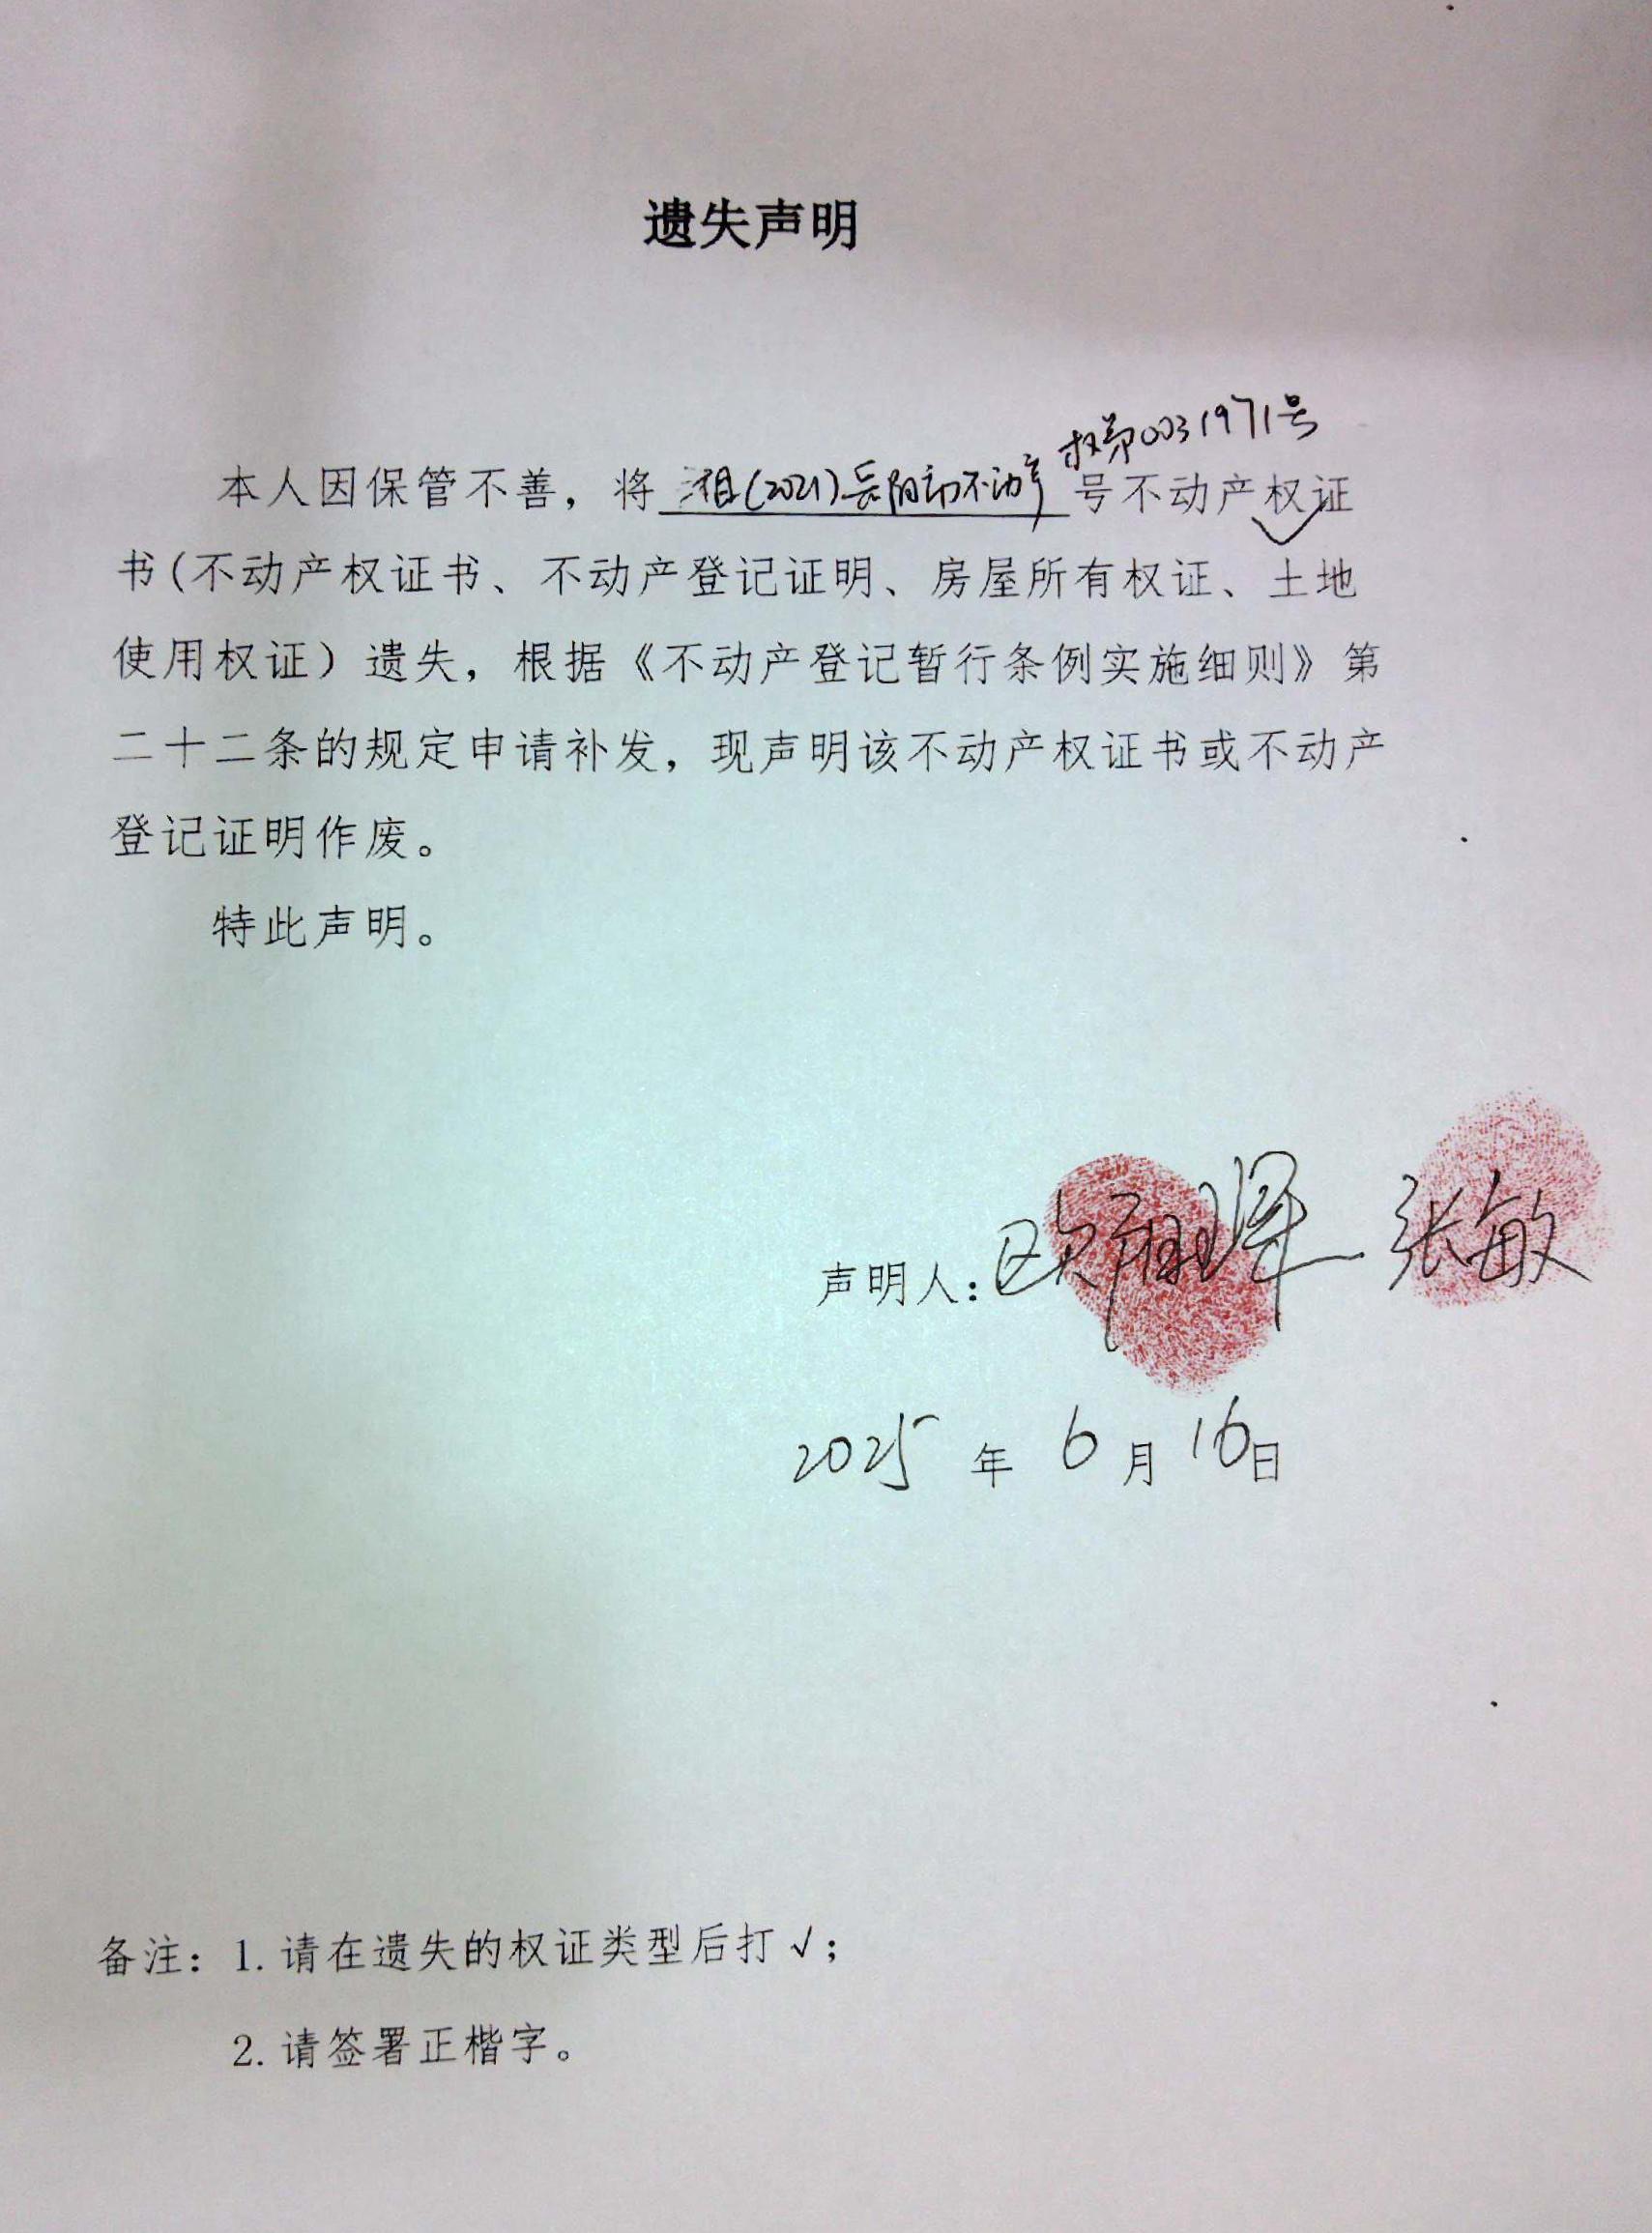 遗失声明
本人因保管不善，将 湘(2021)岳阳市不动产权第0031971号 号不动产权证
书(不动产权证书、不动产登记证明、房屋所有权证、土地
使用权证）遗失，根据《不动产登记暂行条例实施细则》第
二十二条的规定申请补发，现声明该不动产权证书或不动产
登记证明作废。
特此声明。
声明人：欧 张敏
2025 年 6 月 16日
备注：1. 请在遗失的权证类型后打√；
2. 请签署正楷字。